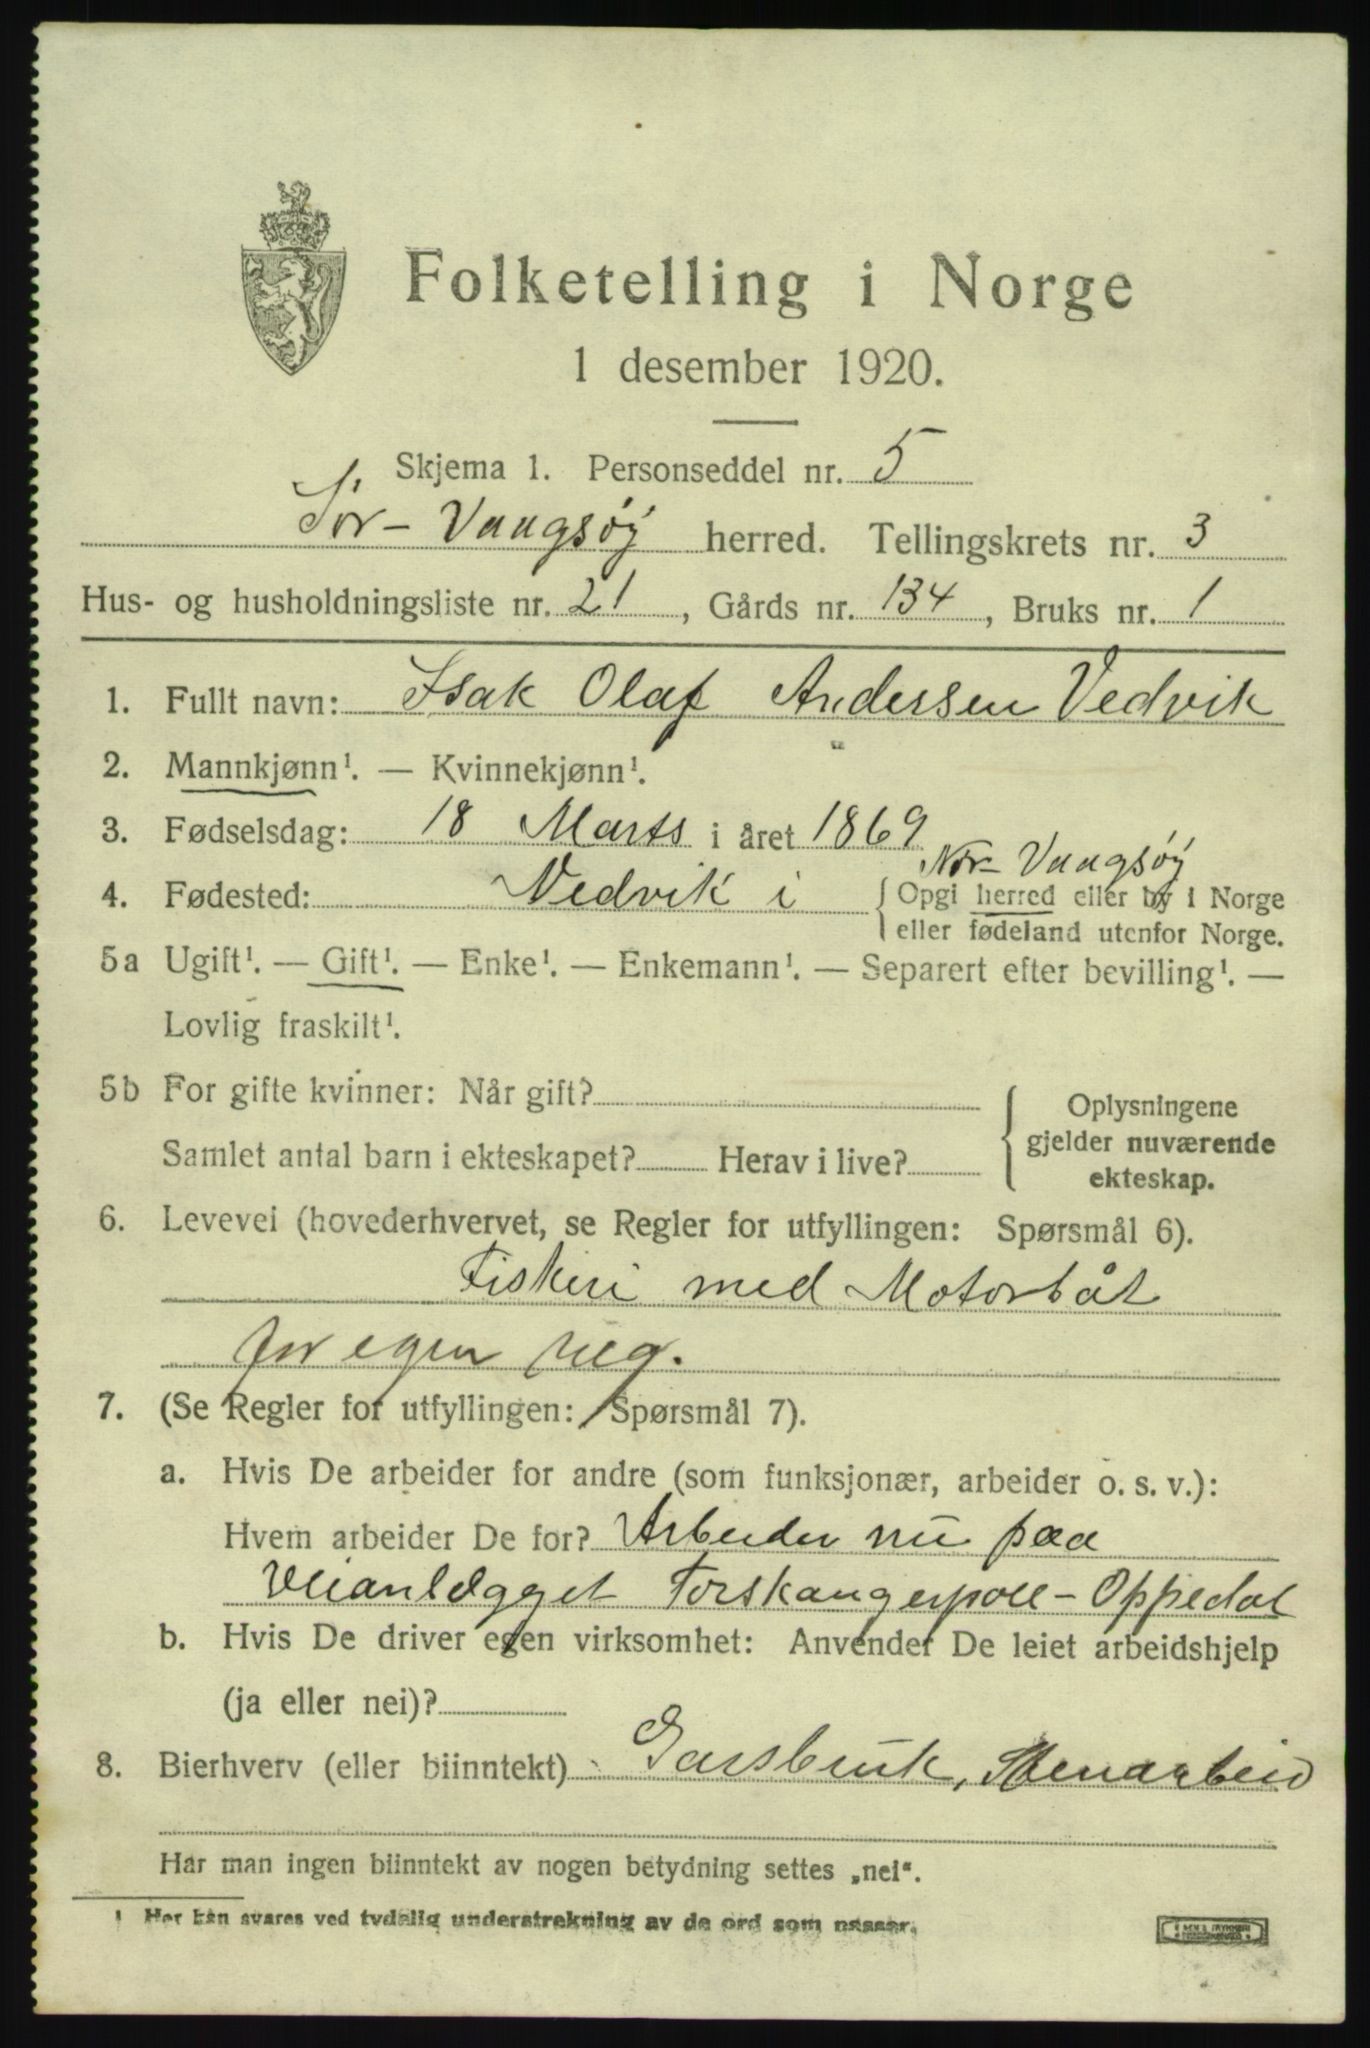 Folketelling i Norge
1 desember 1920.
Skjema 1. Personseddel nr. 5
Sør-Vaagsøy herred. Tellingskrets nr. 3
Hus- og husholdningsliste nr. 21, Gårds nr. 134, Bruks nr. 1
1. Fullt navn: Isak Olaf Andersen Vedvik
2. Mannkjønn¹. — Kvinnekjønn¹.
3. Fødselsdag: 18 Marts i året 1869
Nor-Vaagsøy
4. Fødested: Vedvik i { Opgi herred eller by i Norge
eller fødeland utenfor Norge.
5a Ugift¹. — Gift¹. — Enke¹. — Enkemann¹. — Separert efter bevilling¹. —
Lovlig fraskilt¹.
5b For gifte kvinner: Når gift?
Samlet antal barn i ekteskapet? Herav i live?
{ Oplysningene
gjelder nuværende
ekteskap.
6. Levevei (hovederhvervet, se Regler for utfyllingen: Spørsmål 6).
Fiskeri med Motorbåt
for egen reg.
7. (Se Regler for utfyllingen: Spørsmål 7).
a. Hvis De arbeider for andre (som funksjonær, arbeider o. s. v.):
Hvem arbeider De for? Arbeider nu paa
Veianlægget Torskangerpoll-Oppedal
b. Hvis De driver egen virksomhet: Anvender De leiet arbeidshjelp
(ja eller nei)?
8. Bierhverv (eller biinntekt) Garsbruk, Stenarbeid
Har man ingen biinntekt av nogen betydning settes „nei“.
¹ Her kan svares ved tydelig understrekning av de ord som passer.